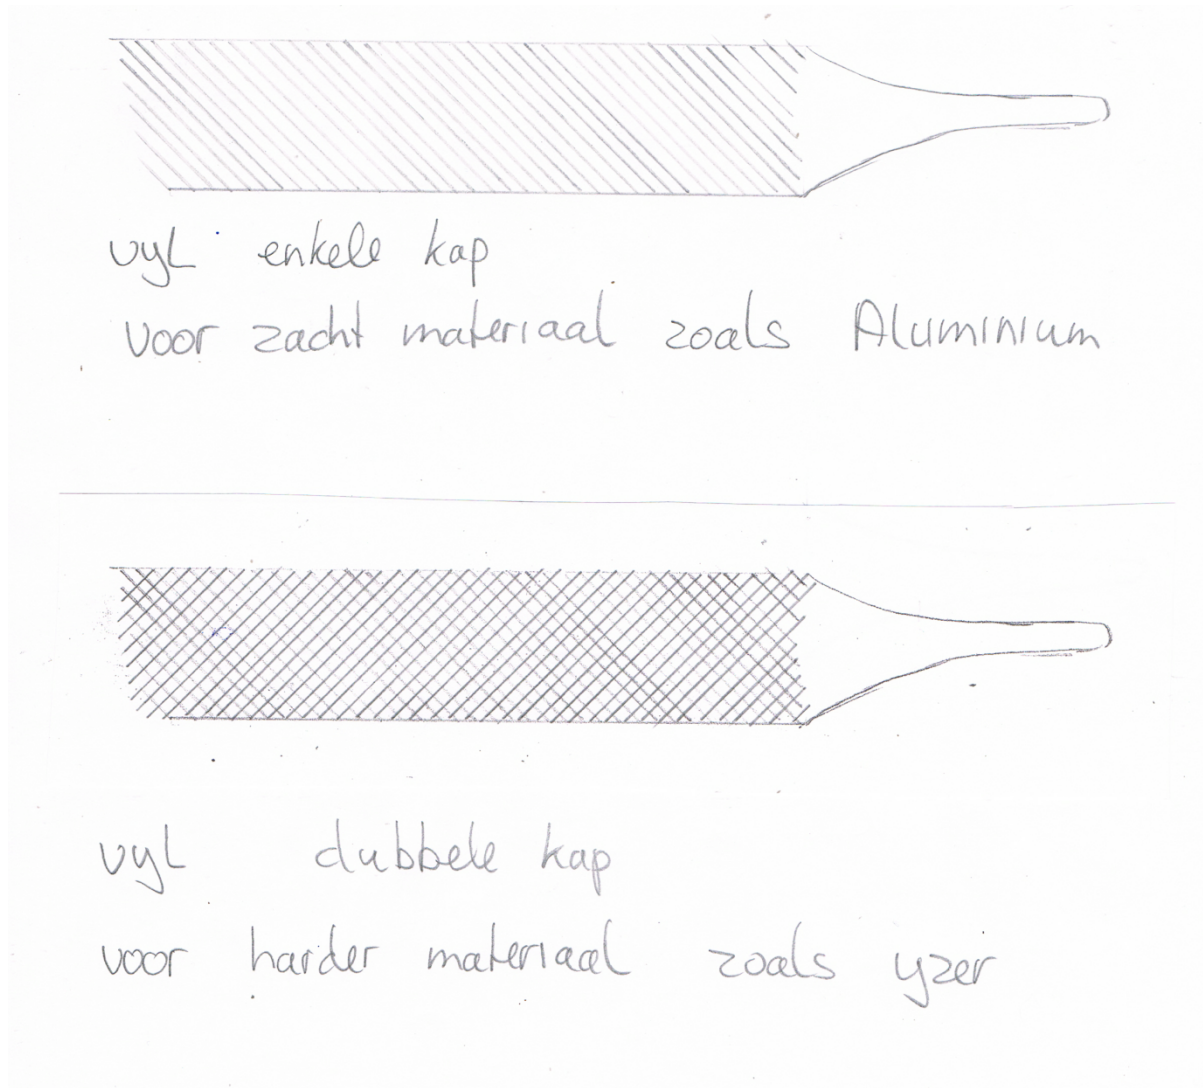 vyl enkele kap
voor zacht materiaal zoals Aluminium
vyl dubbele kap
voor harder materiaal zoals yzer